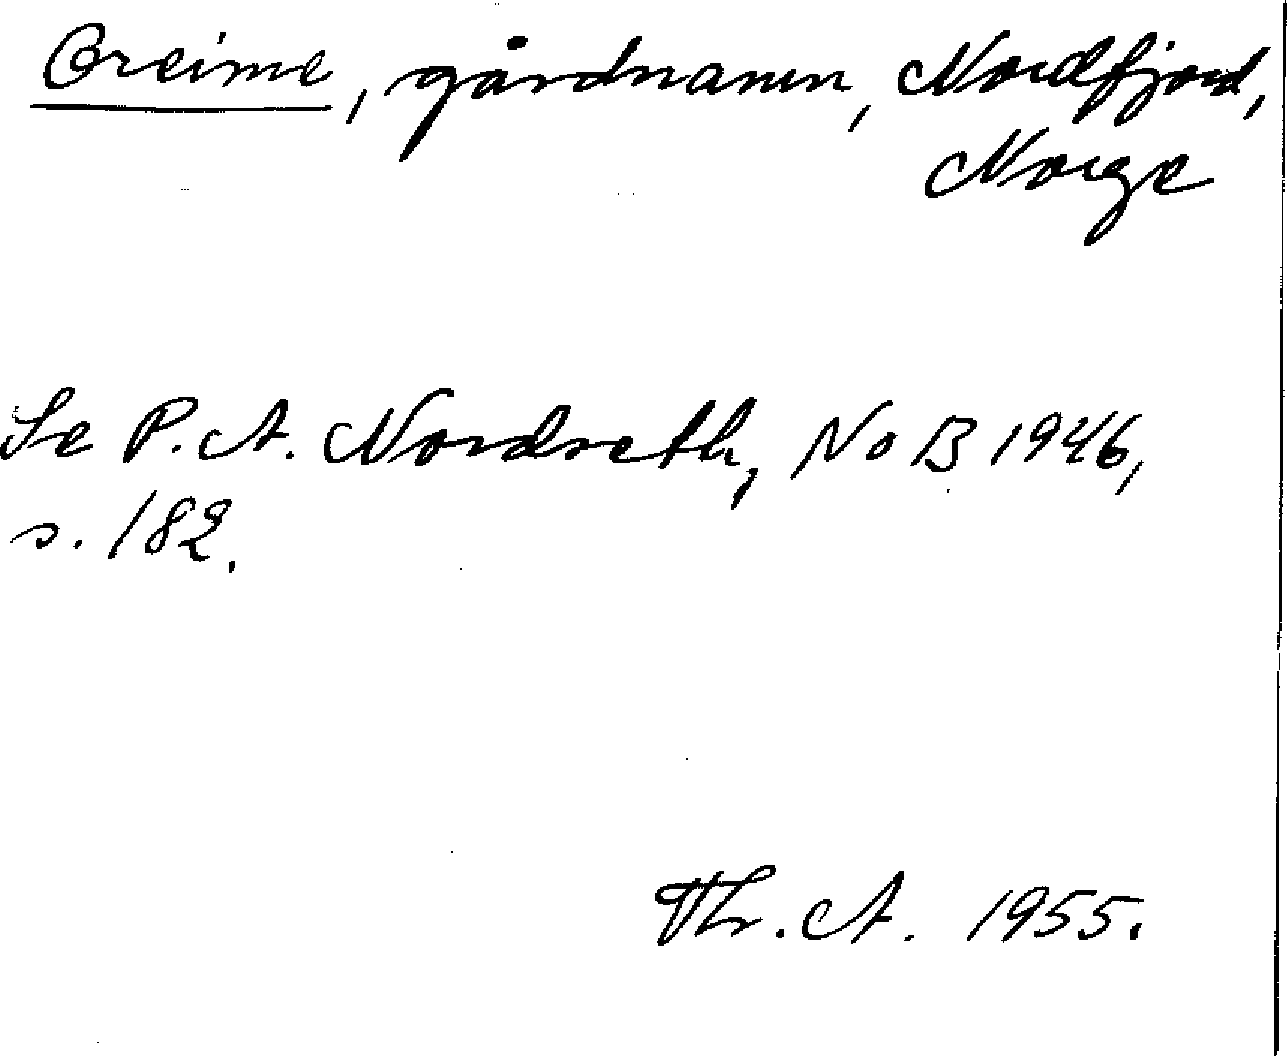 Breime, gårdnamn, Nordfjord,
Norge
Se P. A. Nordreth, NoB 1946,
s. 182.
Th. A. 1955.